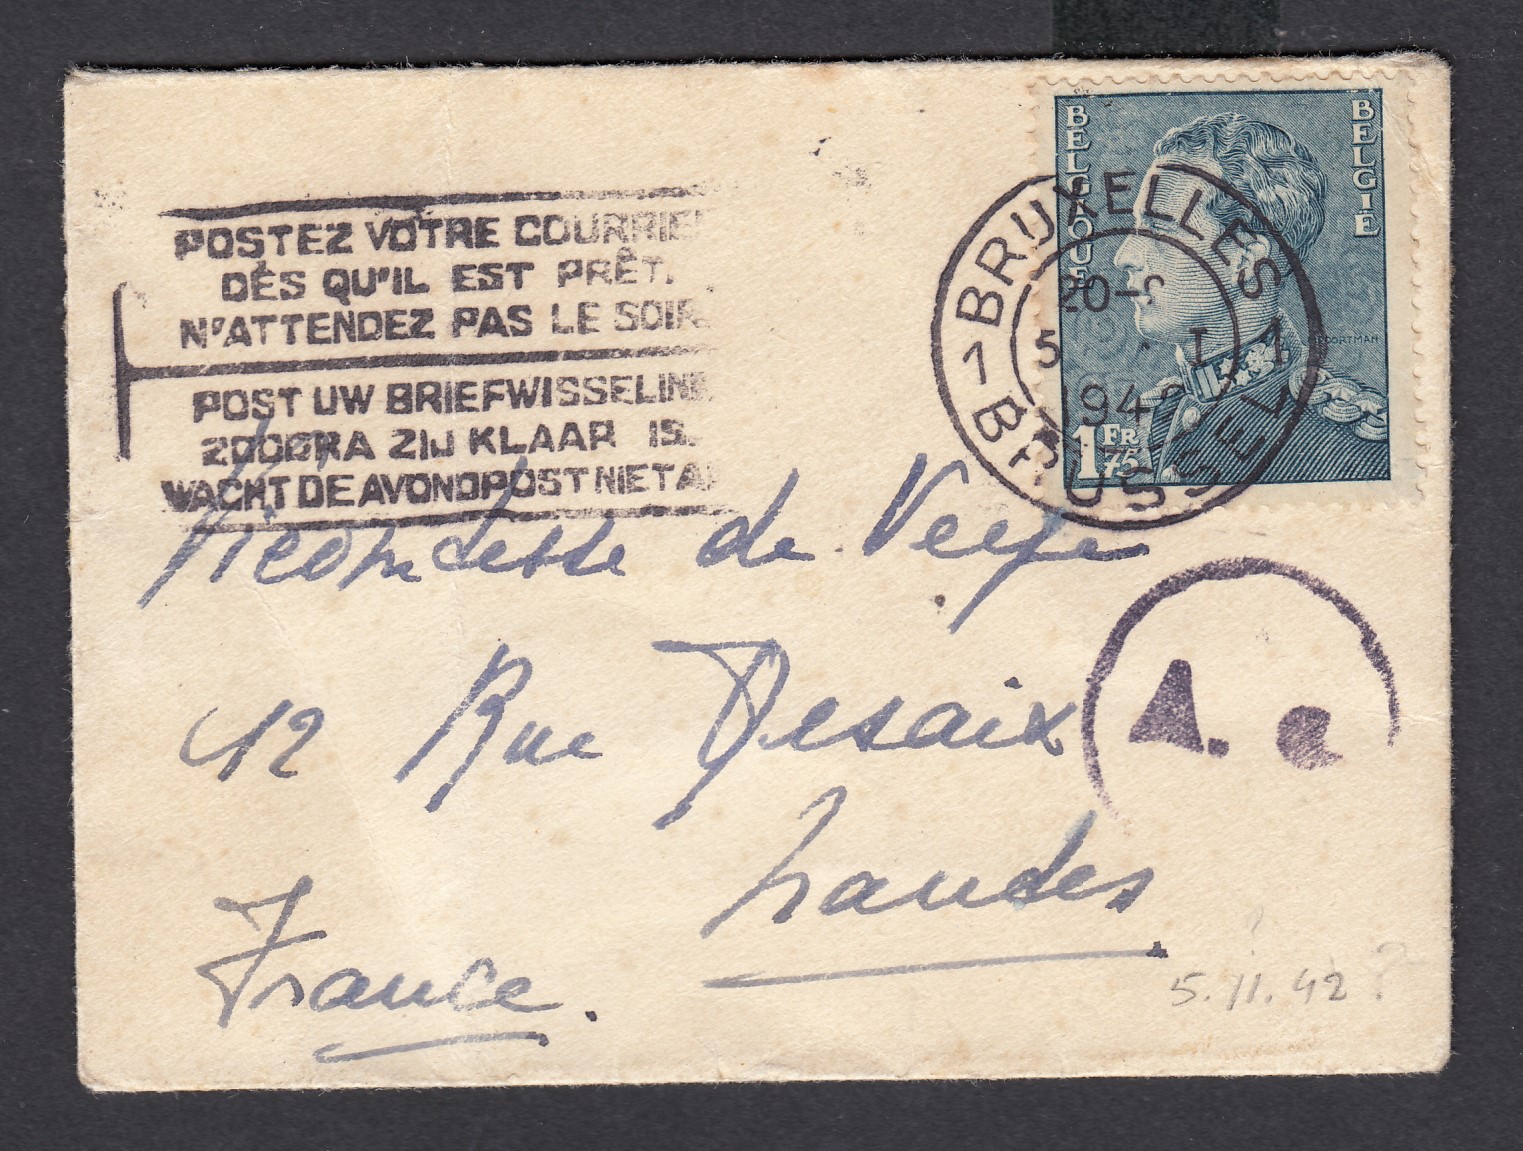 POSTEZ VOTRE COURRIE
DÈS QU'IL EST PRÊT.
N'ATTENDEZ PAS LE SOIR.
POST UW BRIEFWISSELING
ZOODRA ZIJ KLAAR IS.
WACHT DE AVONDPOST NIET A
BELGIQUE
BELGIË
1 FR 75
POORTMAN
1 BRUXELLES 1
20-
5 I
194
BRUSSEL
Vicomtesse de
12 Rue Desaix
A. e
Landes
France.
5. II. 42 ?
?